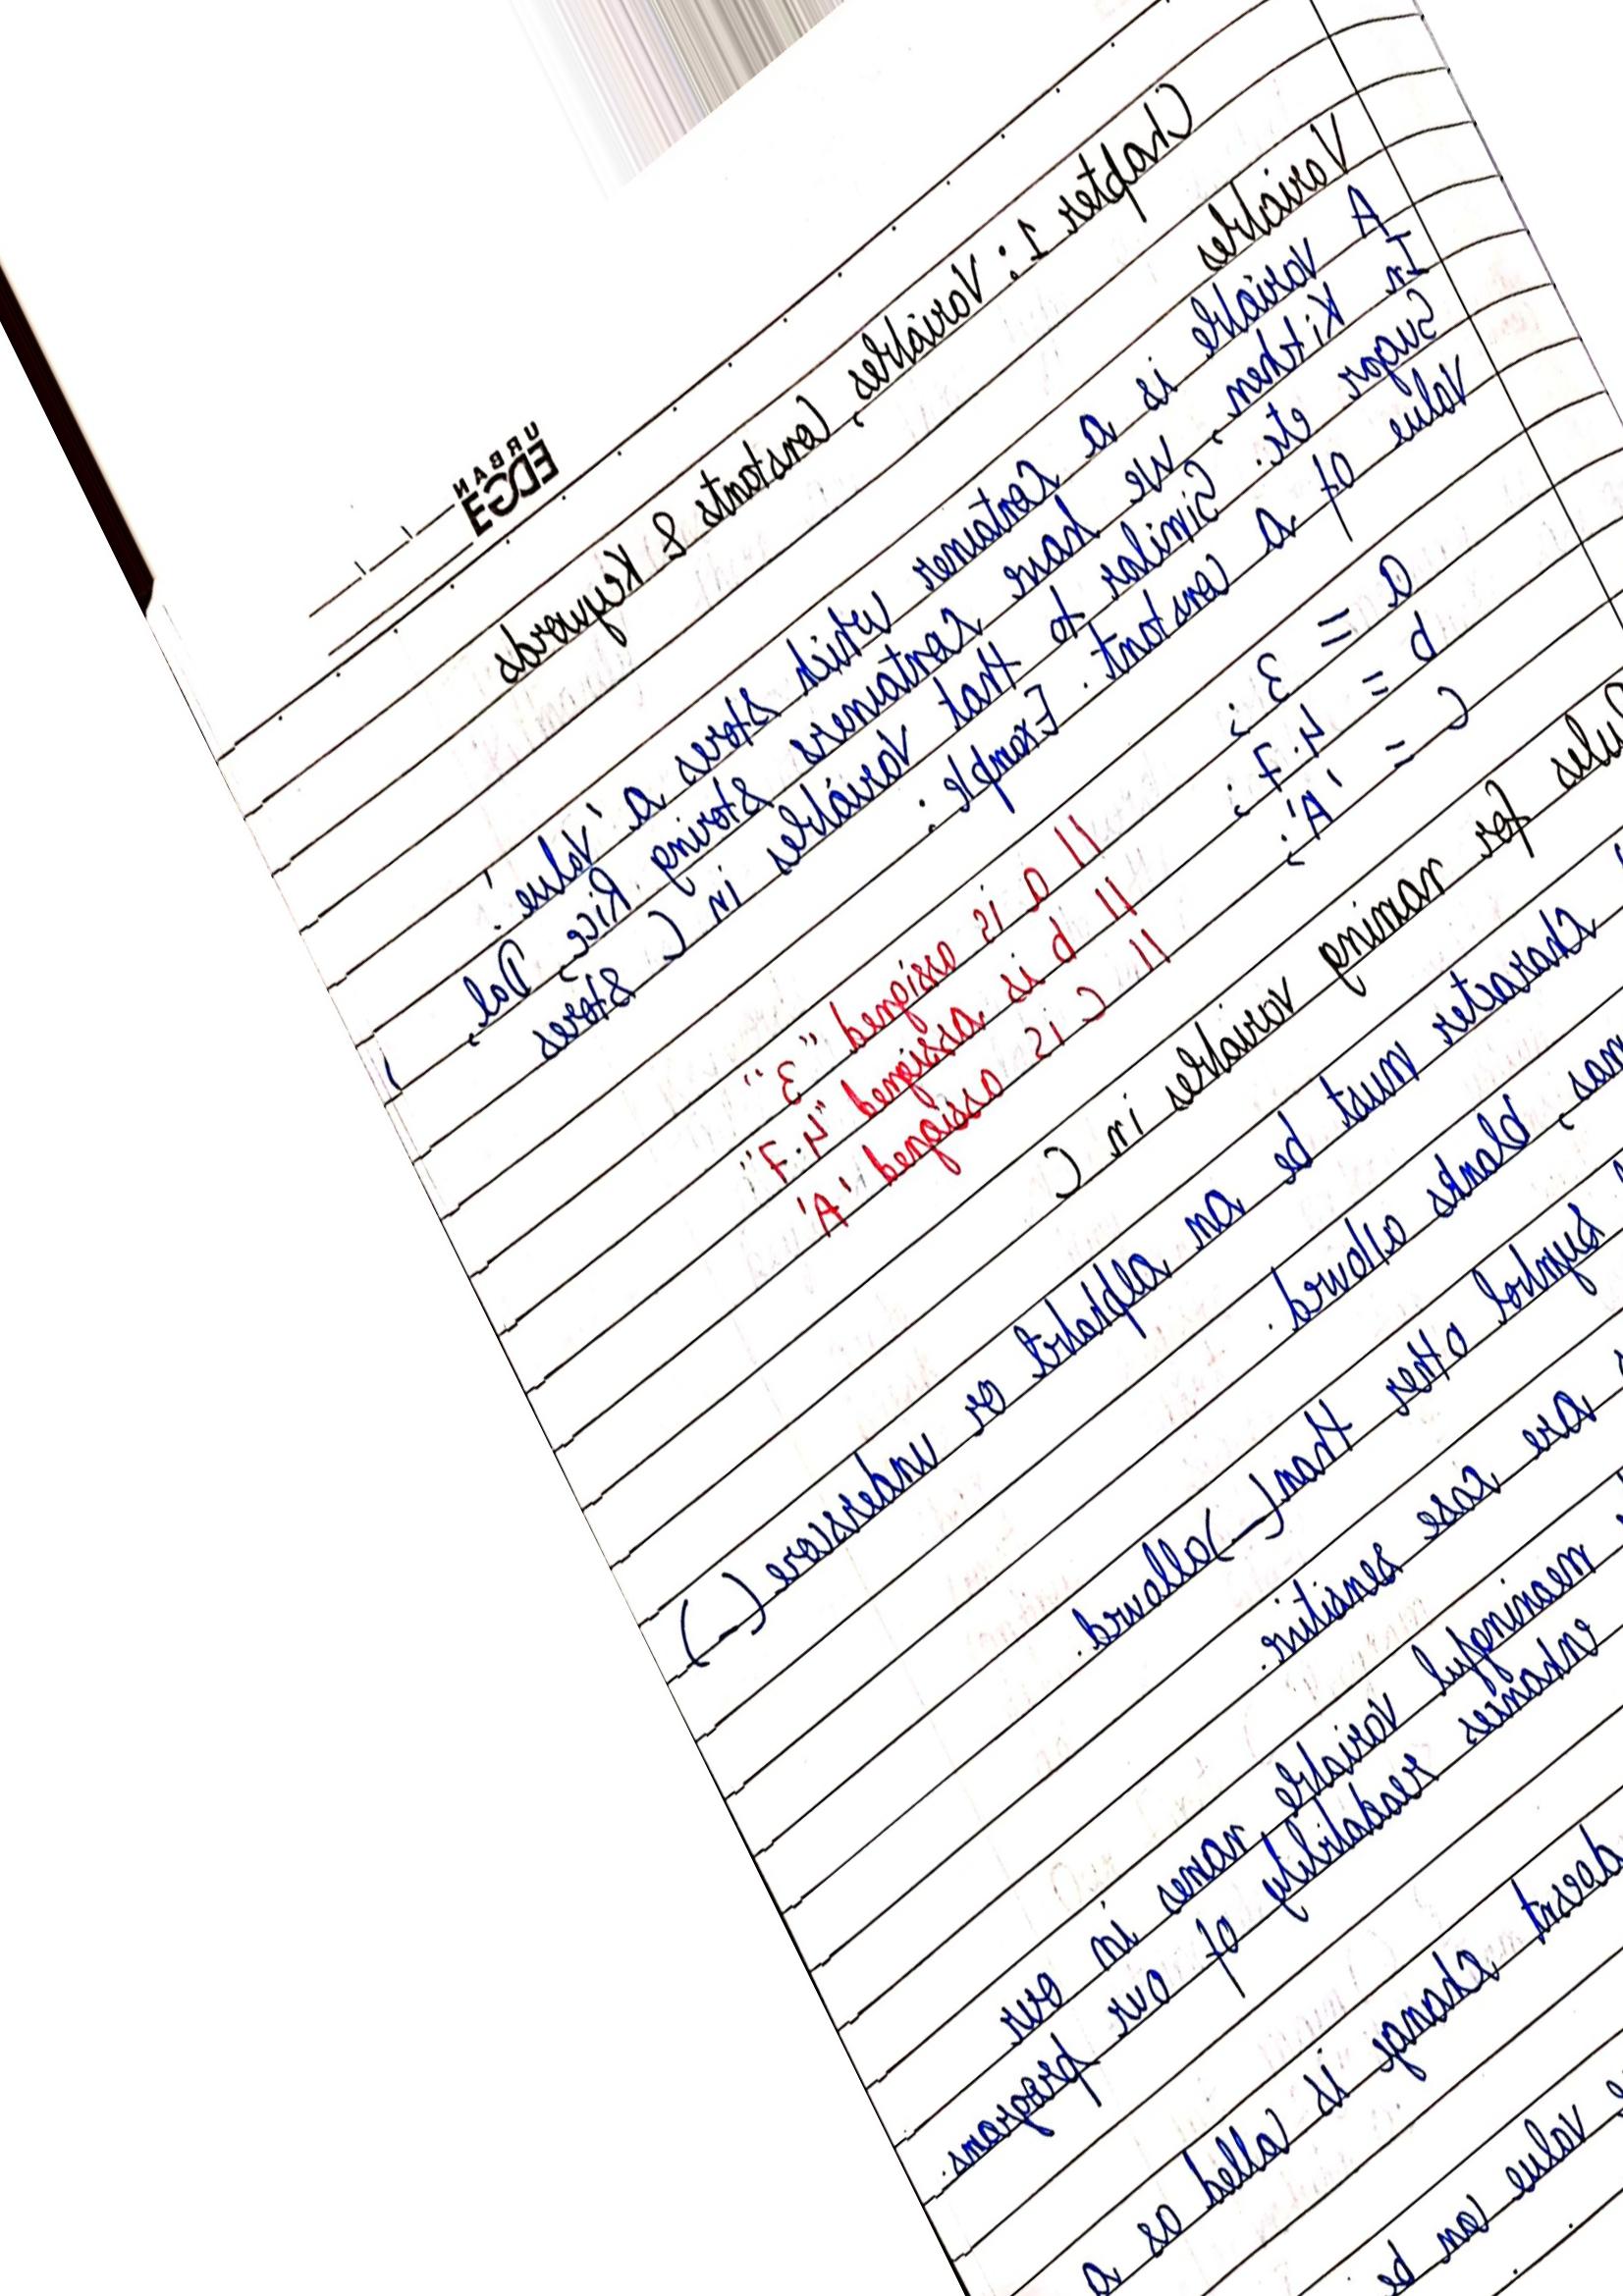 URBAN
EDGE
Chapter 1: Variables, Constants & Keywords
Variables
A variable is a Container which stores a 'Value'.
In Kitchen, We have Containers Storing Rice, Dal,
Sugar etc. Similar to that Variables in C Stores
Value of a Constant. Example:
a = 3; // a is assigned "3"
b = 4.7; // b is assigned "4.7"
C = 'A'; // C is assigned 'A'
for naming variables in C
character must be an alphabet or underscore (_)
blanks allowed.
Symbol other than (_) allowed.
are case sensitive.
meaningful variable names in our
enhances readability of our programs.
doesnt change is called as a
value can be